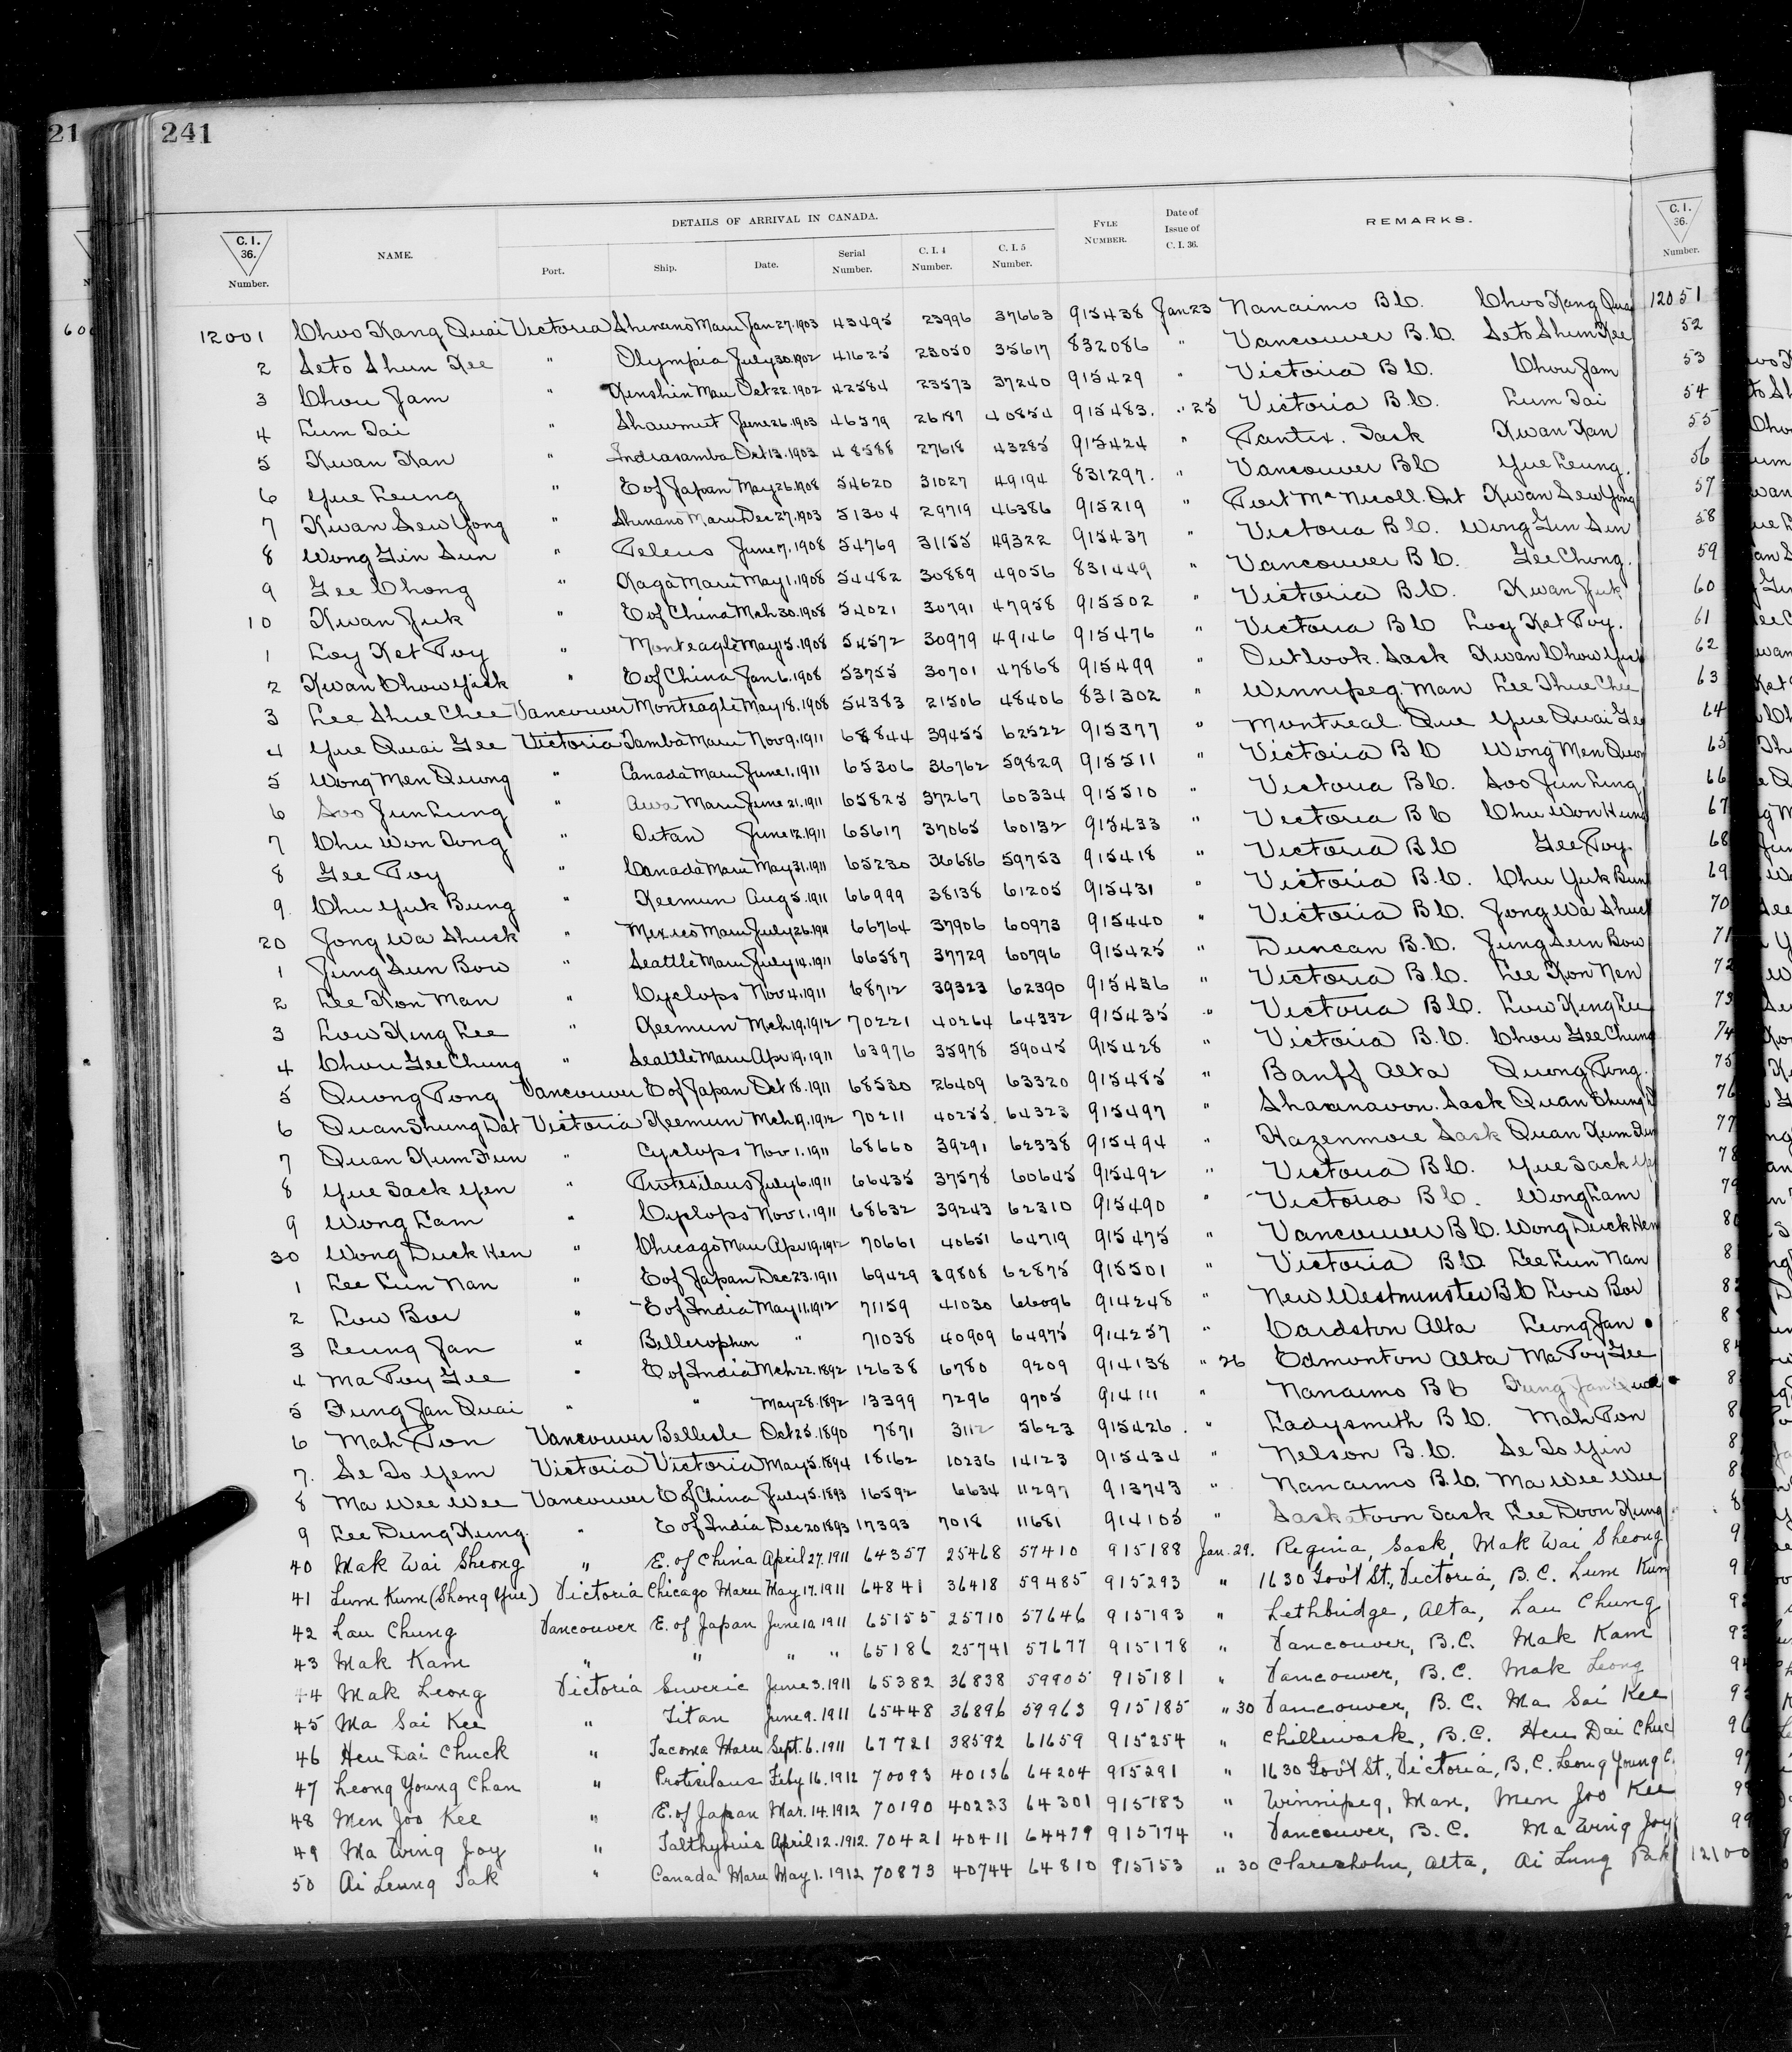 21
241
DETAILS OF ARRIVAL IN CANADA.
C. I. 36. Number. NAME. Port. Ship. Date. Serial Number. C. I. 4 Number. C. I. 5 Number. FYLE NUMBER. Date of Issue of C. I. 36. REMARKS. C. I. 36. Number.
12001 Choo Kang Quai Victoria Shinano Maru Jan 27.1903 43495 23996 37663 915438 Jan 23 Nanaimo B.C. Choo Kang Quai 12051
2 Seto Shun Kee " Olympia July 30.1902 41625 23050 35617 832086 " Vancouver B.C. Seto Shun Kee 52
3 Chou Jam " Kinshin Mau Oct 22.1902 42584 23573 37240 915429 " Victoria B.C. Chou Jam 53
4 Lum Dai " Shawmut June 26.1903 46579 26187 40854 915483. " 25 Victoria B.C. Lum Dai 54
5 Kwan Kan " Indrasamba Oct 13.1903 48588 27618 43285 915424 " Pantix. Sask Kwan Kan 55
6 Yue Leung " E of Japan May 26.1908 54620 31027 49194 831297. " Vancouver B.C. Yue Leung. 56
7 Kwan Sew Yong " Shinano Maru Dec 27.1903 51304 29719 46386 915219 " Port McNicoll. Ont Kwan Sew Yong 57
8 Wong Gin Sun " Peleus June 7.1908 54769 31155 49322 915437 " Victoria B.C. Wong Gin Sin 58
9 Gee Chong " Kaga Maru May 1.1908 54482 30889 49056 831449 " Vancouver B.C. Gee Chong. 59
10 Kwan Juk " E of China Mch 30.1908 54021 30791 47958 915502 " Victoria B.C. Kwan Juk 60
1 Loy Ket Poy " Monteagle May 15.1908 54572 30979 49146 915476 " Victoria B.C. Loy Ket Poy. 61
2 Kwan Chow Yick " E of China Jan 6.1908 53755 30701 47868 915499 " Outlook. Sask Kwan Chow Yick 62
3 Lee Shue Chee Vancouver Monteagle May 18.1908 54383 21506 48406 831302 " Winnipeg. Man Lee Shue Chee 63
4 Yue Quai Gee Victoria Tamba Maru Nov 9.1911 68844 39455 62522 915377 " Montreal Que Yue Quai Gee 64
5 Wong Men Quong " Canada Maru June 1.1911 65306 36762 59829 915511 " Victoria B.C. Wong Men Quon 65
6 Soo Jun Lung " Awa Maru June 21.1911 65825 37267 60334 915510 " Victoria B.C. Soo Jun Lung 66
7 Chu Won Dong " Titan June 12.1911 65617 37065 60132 915433 " Victoria B.C. Chu Won Hung 67
8 Gee Poy " Canada Maru May 31.1911 65230 36686 59753 915418 " Victoria B.C. Gee Poy. 68
9 Chu Yuk Bung " Keemun Aug 5.1911 66999 38138 61205 915431 " Victoria B.C. Chu Yuk Bun 69
20 Jong Wa Shuck " Mexico Maru July 26.1911 66764 37906 60973 915440 " Victoria B.C. Jong Wa Shuck 70
1 Jung Sun Bow " Seattle Maru July 14.1911 66587 37729 60796 915425 " Duncan B.C. Jung Sun Bow 71
2 Lee Kon Man " Cyclops Nov 4.1911 68712 39323 62390 915436 " Victoria B.C. Lee Kon Nen 72
3 Low King Lee " Keemun Mch 19.1912 70221 40264 64332 915435 " Victoria B.C. Low King Lee 73
4 Chou Gee Chung " Seattle Maru Apr 19.1911 63976 35978 59045 915428 " Victoria B.C. Chou Gee Chung 74
5 Quong Pong Vancouver E of Japan Oct 18.1911 68530 26409 63320 915485 " Banff Alta Quong Pong. 75
6 Quan Shung Dat Victoria Keemun Mch 19.1912 70211 40255 64323 915497 " Shaunavon. Sask Quan Shung D 76
7 Quan Kum Fun " Cyclops Nov 1.1911 68660 39291 62338 915494 " Hazenmore Sask Quan Kum Fun 77
8 Yue Sack Yen " Protesilaus July 6.1911 66435 37578 60645 915492 " Victoria B.C. Yue Sack Yen 78
9 Wong Lam " Cyclops Nov 1.1911 68632 39243 62310 915490 " Victoria B.C. Wong Lam 79
30 Wong Duck Hen " Chicago Mau Apr 19.1912 70661 40651 64719 915475 " Vancouver B.C. Wong Duck Hen 80
1 Lee Lun Nan " E of Japan Dec 23.1911 69429 39808 62875 915501 " Victoria B.C. Lee Lun Nan 8
2 Low Bor " E of India May 11.1912 71159 41030 66096 914248 " New Westminster B.C. Low Bor 8
3 Leung Jan " Bellerophon " 71038 40909 64975 914257 " Cardston Alta Leong Jan 8
4 Ma Poy Gee " E of India Mch 22.1892 12638 6780 9209 914138 " 26 Edmonton Alta Ma Poy Gee 84
5 Fung Jan Quai " " May 28.1892 13399 7296 9705 914111 " Nanaimo B.C. Fung Jan Quai 8
6 Mah Pon Vancouver Bellisle Oct 25.1890 7871 3112 5623 915426. " Ladysmith B.C. Mah Pon 8
7. Se So Yem Victoria Victoria May 5.1894 18162 10236 14123 915434 " Nelson B.C. Se So Yin 8
8 Ma Wee Wee Vancouver E of China July 5.1893 16592 6634 11297 913743 " Nanaimo B.C. Ma Wee Wee 8
9 Lee Dung Kung. " E of India Dec 20 1893 17393 7018 11681 914105 " Saskatoon Sask Lee Doon Kung. 8
40 Mak Wai Sheong " E. of China April 27.1911 64357 25468 57410 915188 Jan. 29. Regina, Sask, Mak Wai Sheong 9
41 Lum Kum (Shong Yue) Victoria Chicago Maru May 17.1911 64841 36418 59485 915293 " 1630 Gov't St., Victoria, B.C. Lum Kum 9
42 Lau Chung Vancouver E. of Japan June 10.1911 65155 25710 57646 915193 " Lethbridge, Alta, Lau Chung 92
43 Mak Kam " " " " 65186 25741 57677 915178 " Vancouver, B.C. Mak Kam 93
44 Mak Leong Victoria Suveric June 3.1911 65382 36838 59905 915181 " Vancouver, B.C. Mak Leong 94
45 Ma Sai Kee " Titan June 9.1911 65448 36896 59963 915185 " 30 Vancouver, B.C. Ma Sai Kee 9
46 Heu Dai Chuck " Tacoma Maru Sept. 6.1911 67721 38592 61659 915254 " Chilliwack, B.C. Heu Dai Chuc 96
47 Leong Young Chan " Protisilaus Feby 16.1912 70093 40136 64204 915291 " 1630 Gov't St., Victoria, B.C. Leong Young C. 97
48 Men Joo Kee " E. of Japan Mar. 14.1912 70190 40233 64301 915183 " Winnipeg, Man, Men Joo Kee 98
49 Ma Wing Joy " Talthybius April 12.1912 70421 40411 64479 915174 " Vancouver, B.C. Ma Wing Joy 99
50 Ai Leung Tak " Canada Maru May 1.1912 70873 40744 64810 915153 " 30 Claresholm, Alta, Ai Lung Pak 12100